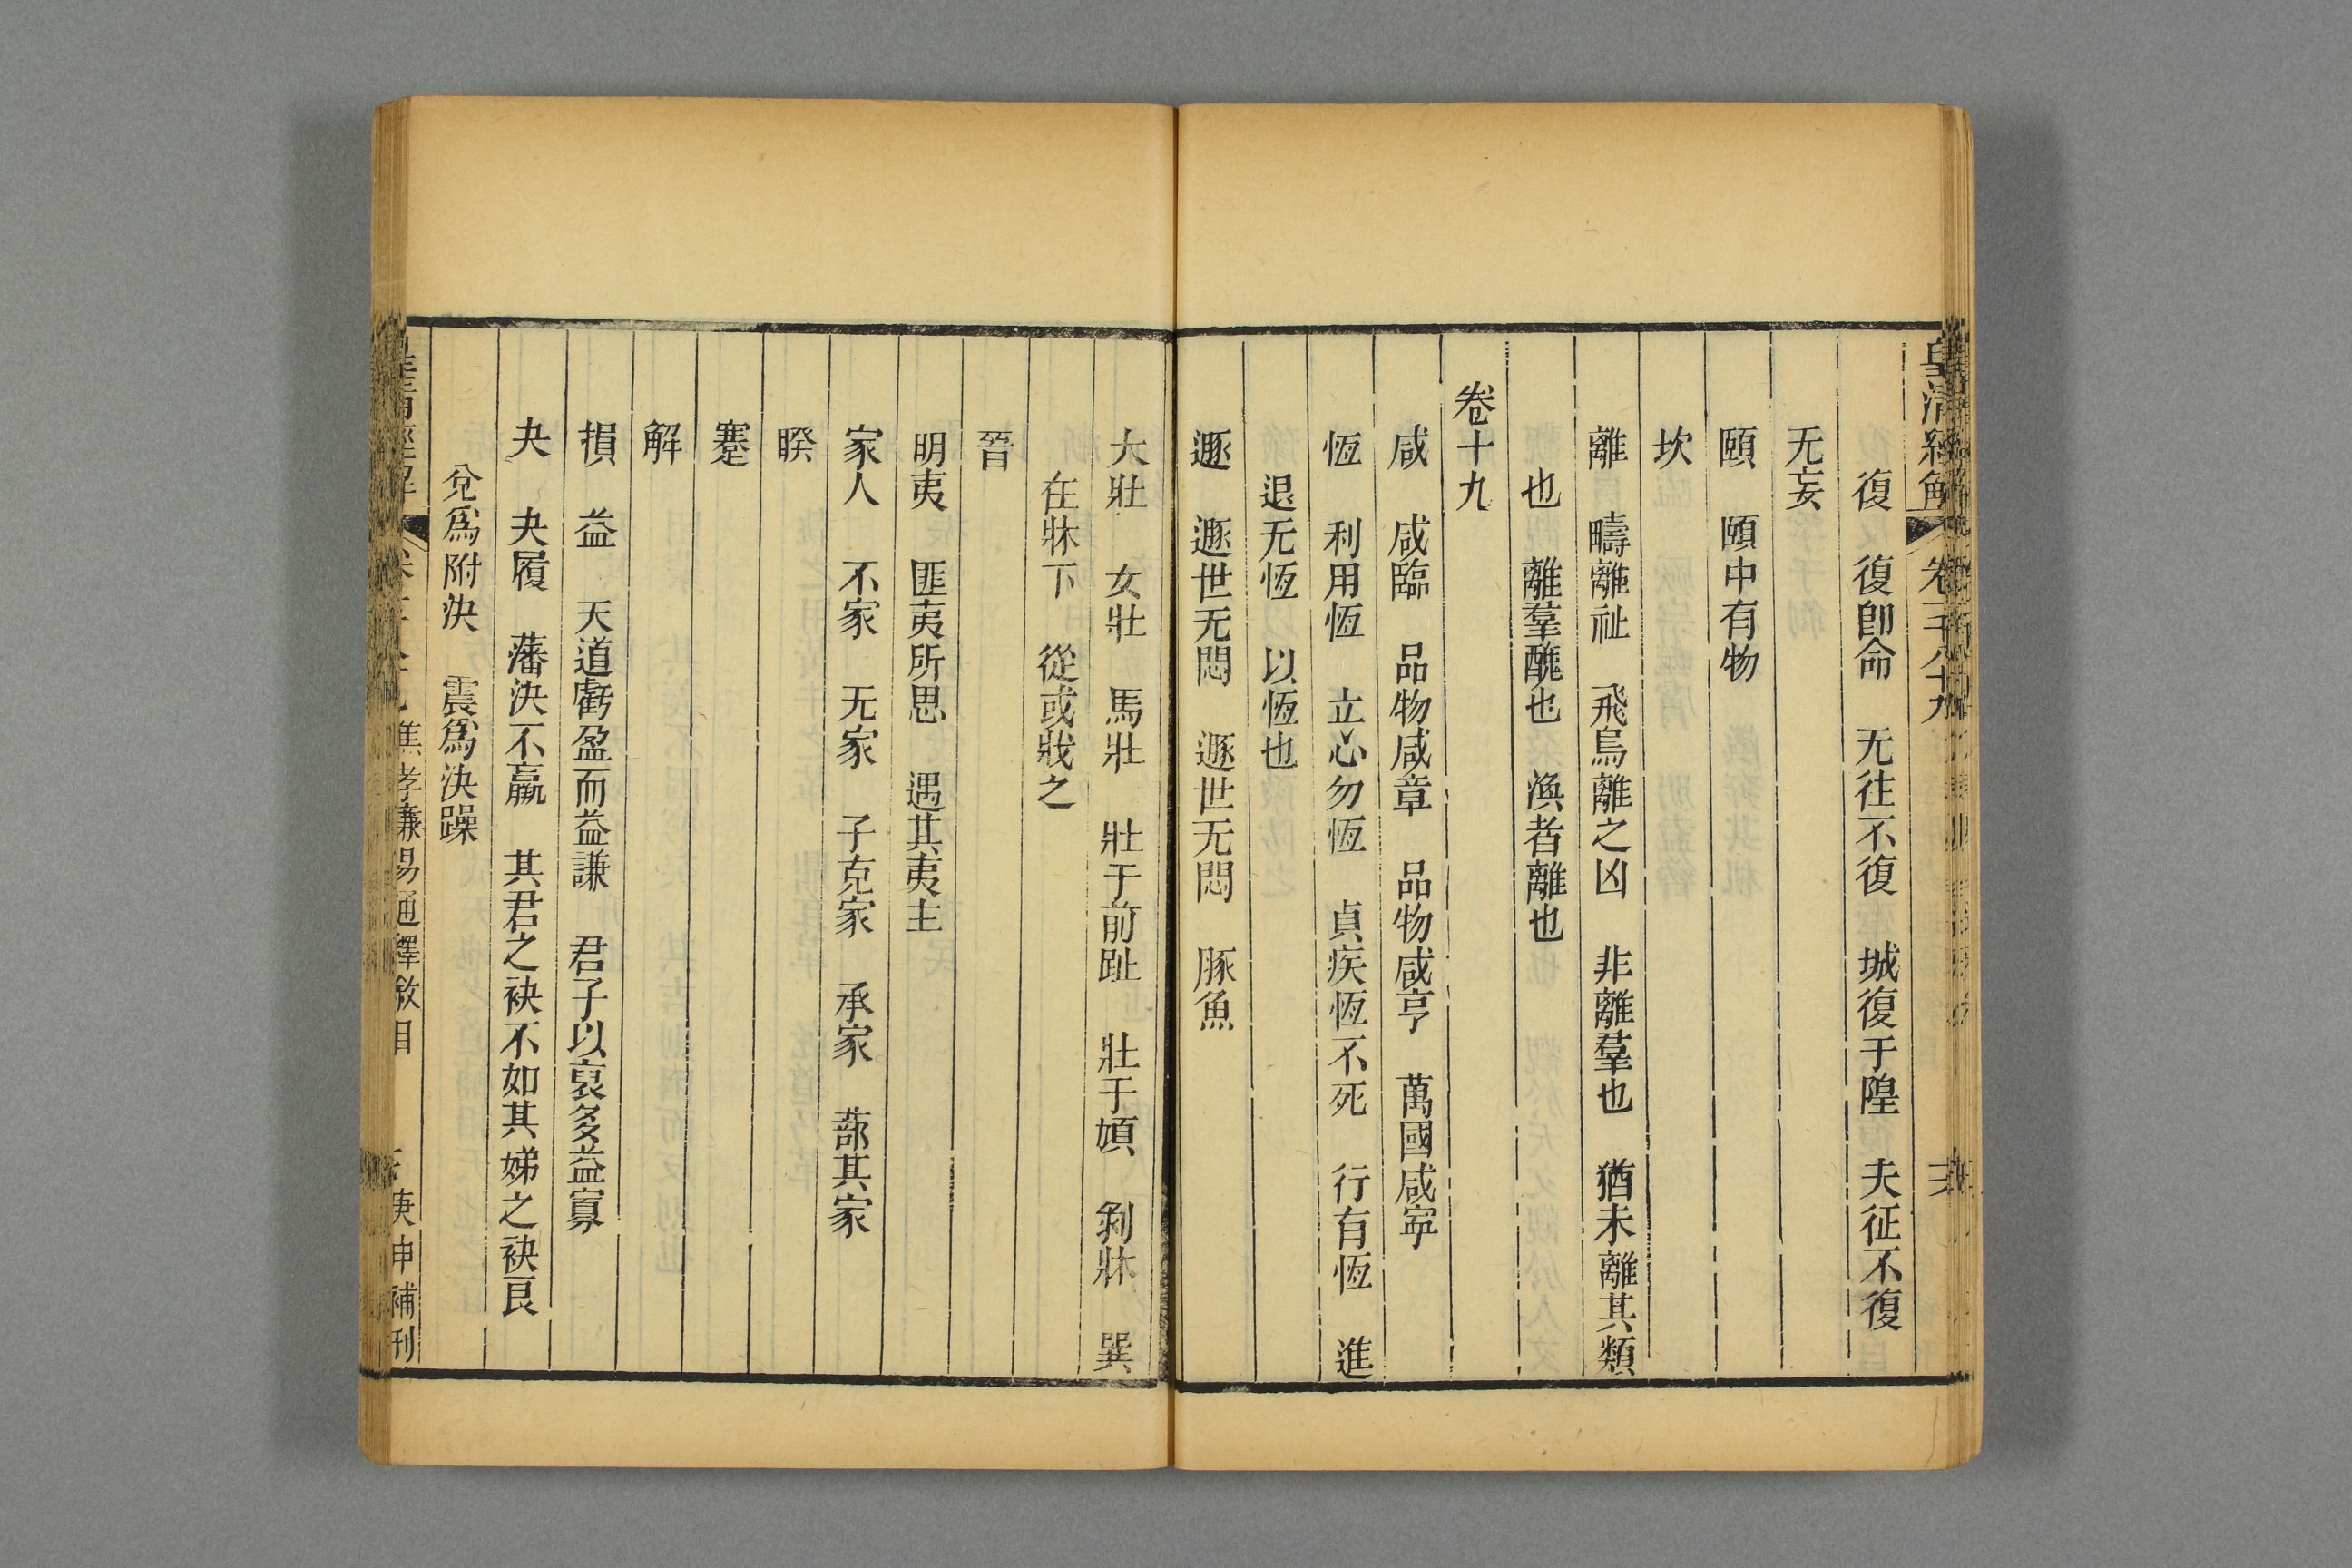 皇清經解 卷一千八十九
復 復卽命 无往不復 城復于隍 夫征不復
无妄
頤 頤中有物
坎
離 疇離祉 飛鳥離之凶 非離羣也 猶未離其類
也 離羣醜也 渙者離也
卷十九
咸 咸臨 品物咸章 品物咸亨 萬國咸寧
恆 利用恆 立心勿恆 貞疾恆不死 行有恆 進
退无恆 以恆也
遯 遯世无悶 遯世无悶 豚魚
大壯 女壯 馬壯 壯于前趾 壯于頄 剝牀 巽
在牀下 從或戕之
晉
明夷 匪夷所思 遇其夷主
家人 不家 无家 子克家 承家 蔀其家
睽
蹇
解
損 益 天道虧盈而益謙 君子以裒多益寡
夬 夬履 藩決不羸 其君之袂不如其娣之袂良
兌爲附決 震爲決躁
焦孝廉易通釋敘目 庚申補刊